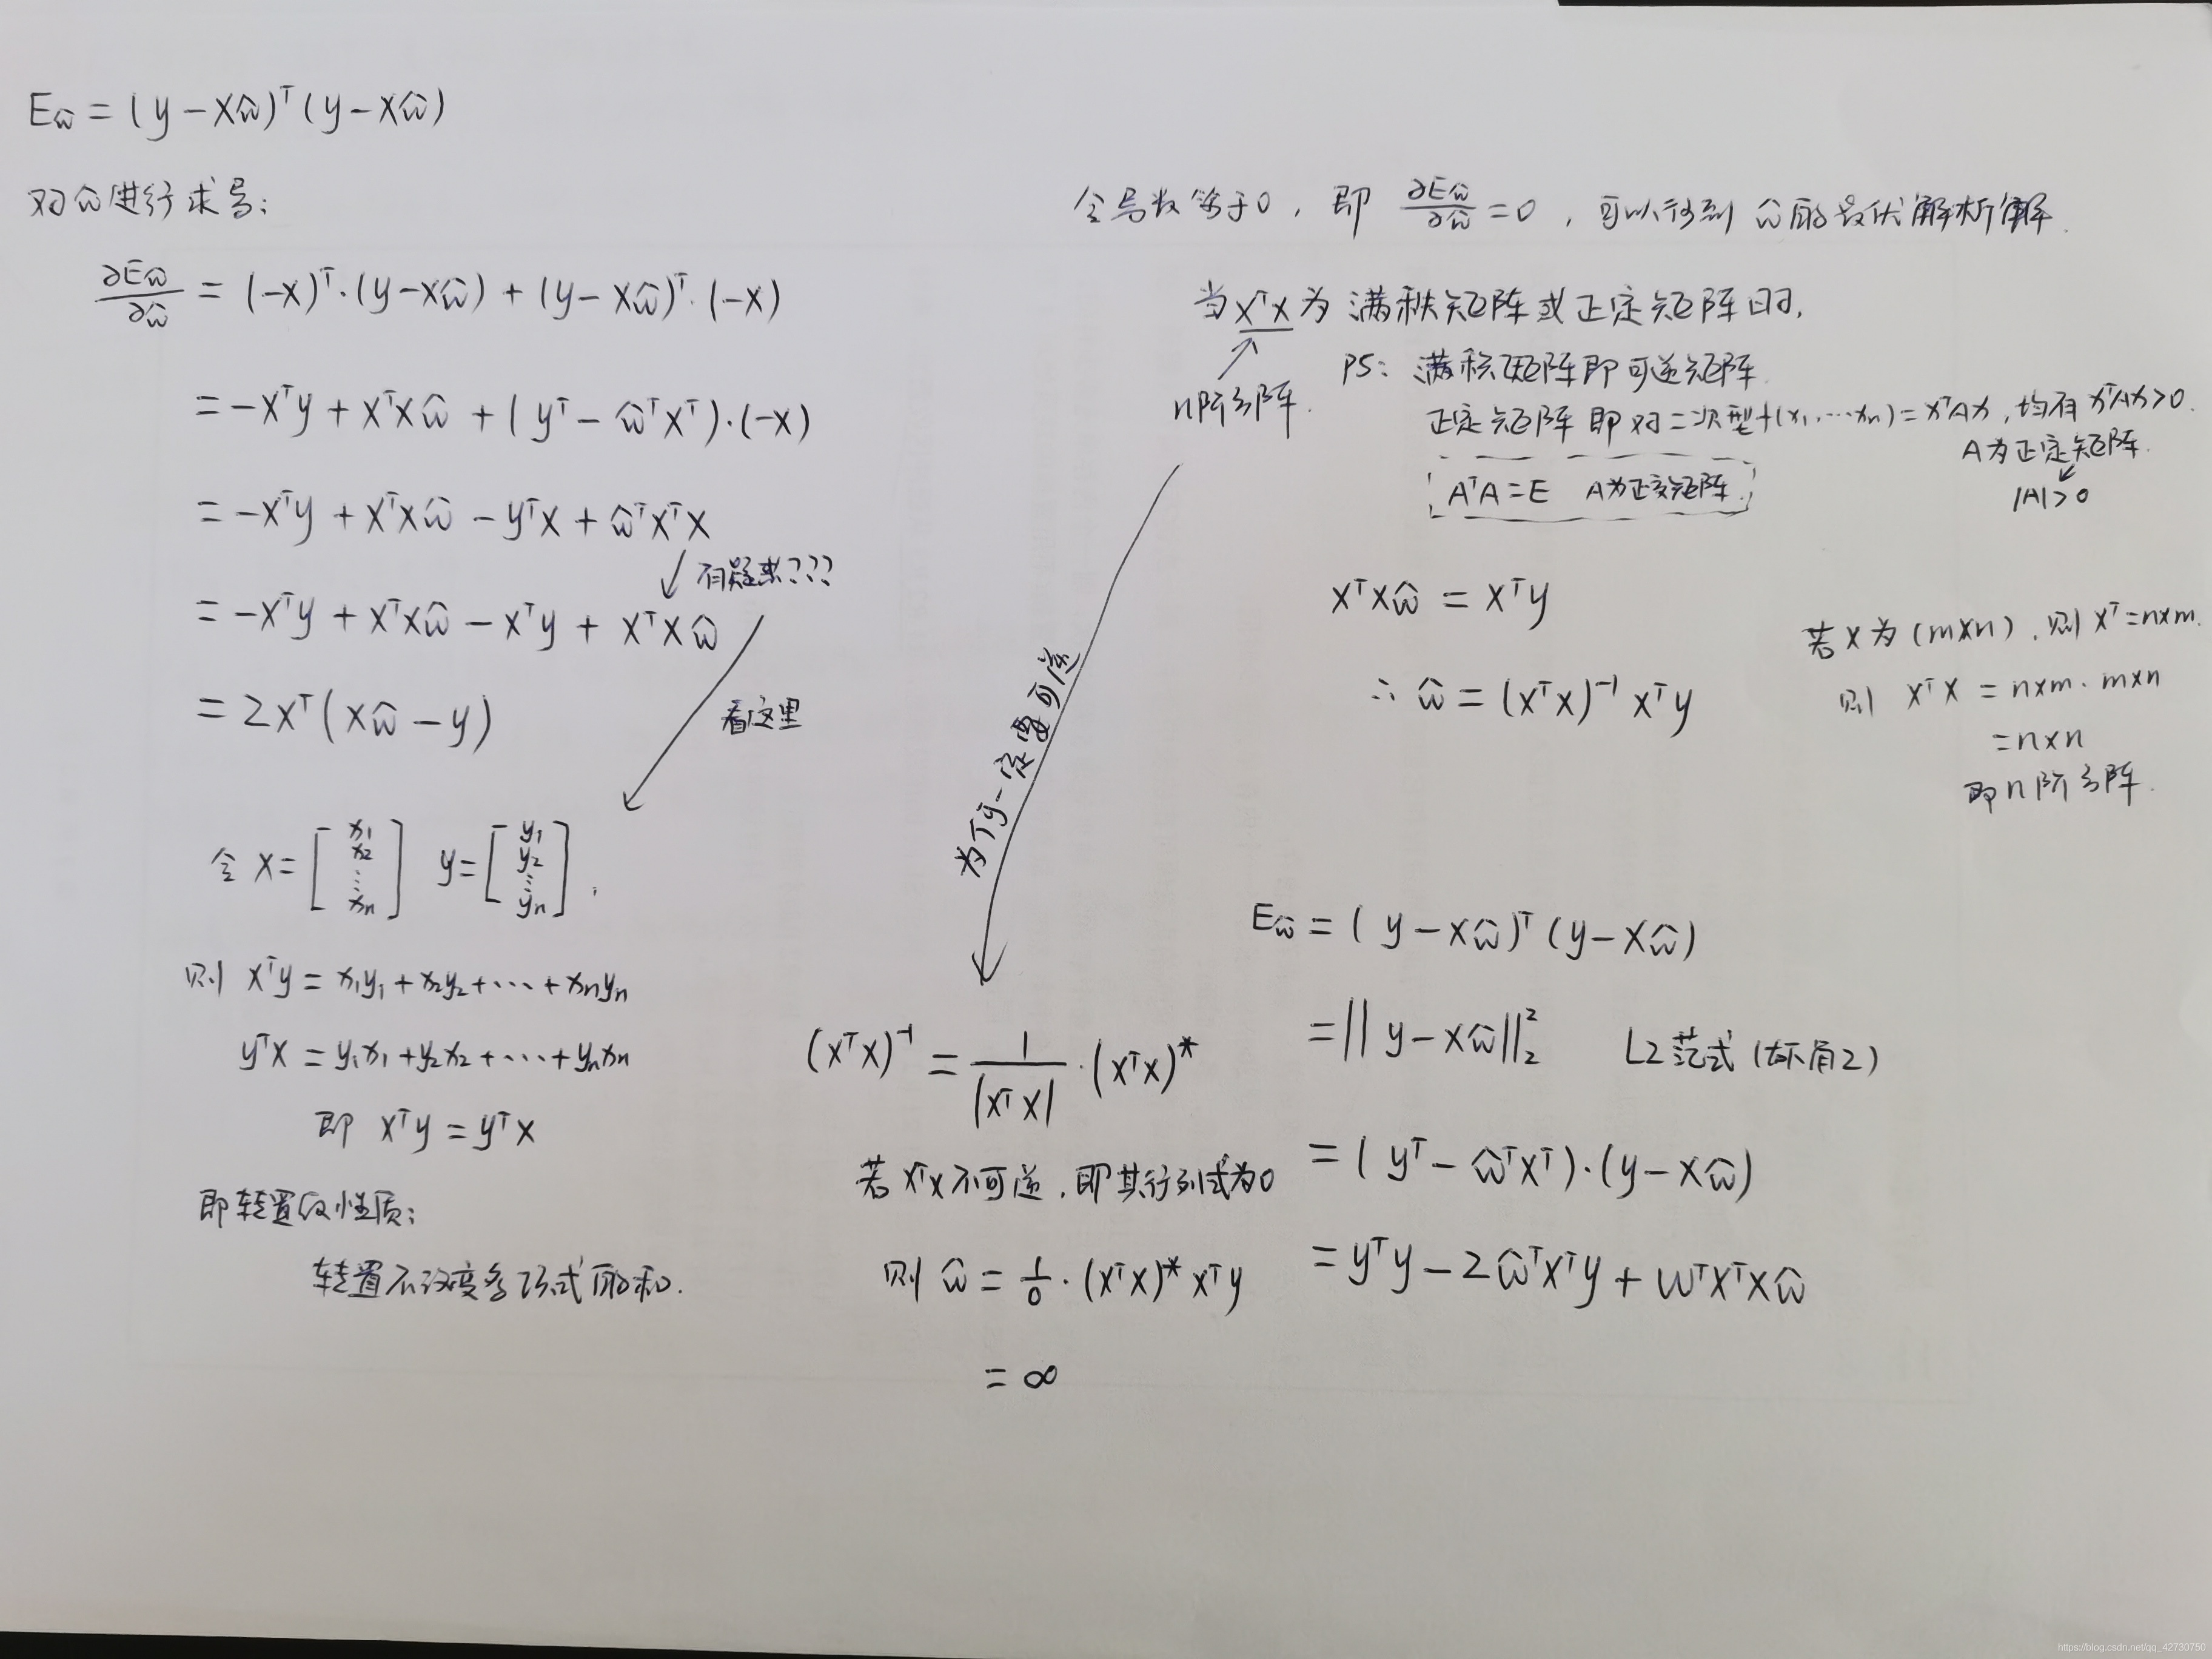 Eŵ = (y − Xŵ)ᵀ(y − Xŵ)
对ŵ进行求导：
∂Eŵ/∂ŵ = (−X)ᵀ·(y−Xŵ) + (y−Xŵ)ᵀ·(−X)
= −Xᵀy + XᵀXŵ + (yᵀ − ŵᵀXᵀ)·(−X)
= −Xᵀy + XᵀXŵ − yᵀX + ŵᵀXᵀX
有疑惑???
= −Xᵀy + XᵀXŵ − Xᵀy + XᵀXŵ
= 2Xᵀ(Xŵ − y)
看这里
令 X = [x₁ x₂ ⋮ xn] y = [y₁ y₂ ⋮ yn],
则 Xᵀy = x₁y₁ + x₂y₂ + ··· + xnyn
yᵀX = y₁x₁ + y₂x₂ + ··· + ynxn
即 Xᵀy = yᵀX
即转置的性质：
转置不改变多项式的和.
令导数等于0，即 ∂Eŵ/∂ŵ = 0，可以得到 ŵ的最优解析解.
当XᵀX为 满秩矩阵或正定矩阵时,
n阶方阵.
PS: 满秩矩阵即可逆矩阵.
正定矩阵 即对二次型f(x₁,···xn) = xᵀAx, 均有 xᵀAx>0.
A为正定矩阵.
|A|>0
AᵀA = E A为正交矩阵.
XᵀXŵ = Xᵀy
∴ ŵ = (XᵀX)⁻¹Xᵀy
若X为(m×n), 则Xᵀ=n×m.
则 XᵀX = n×m · m×n
= n×n
即n阶方阵.
为何一定要可逆
(XᵀX)⁻¹ = 1/|XᵀX| · (XᵀX)*
若XᵀX不可逆, 即其行列式为0
则 ŵ = 1/0 · (XᵀX)*Xᵀy
= ∞
Eŵ = (y − Xŵ)ᵀ(y − Xŵ)
= ||y − Xŵ||₂² L2范式 (标角2)
= (yᵀ − ŵᵀXᵀ)·(y − Xŵ)
= yᵀy − 2ŵᵀXᵀy + wᵀXᵀXŵ
https://blog.csdn.net/qq_42730750